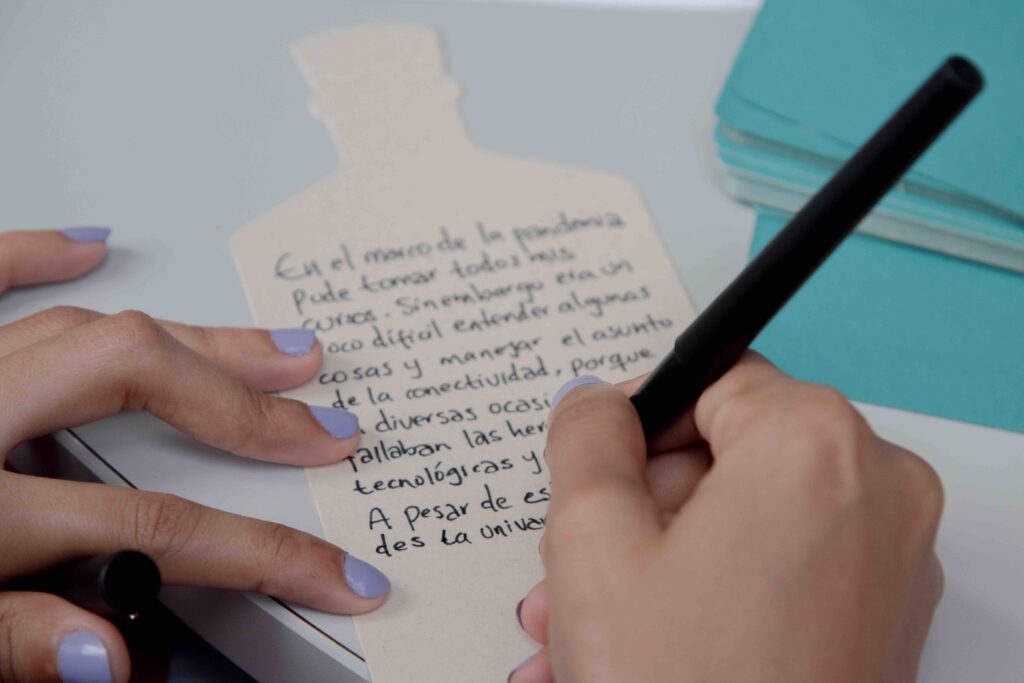 En el marco de la pandemia
pude tomar todos mis
cursos. Sin embargo era un
poco dificil entender algunas
cosas y manejar el asunto
de la conectividad, porque
diversas ocasi
fallaban las her
tecnológicas y
A pesar de es
des la univer